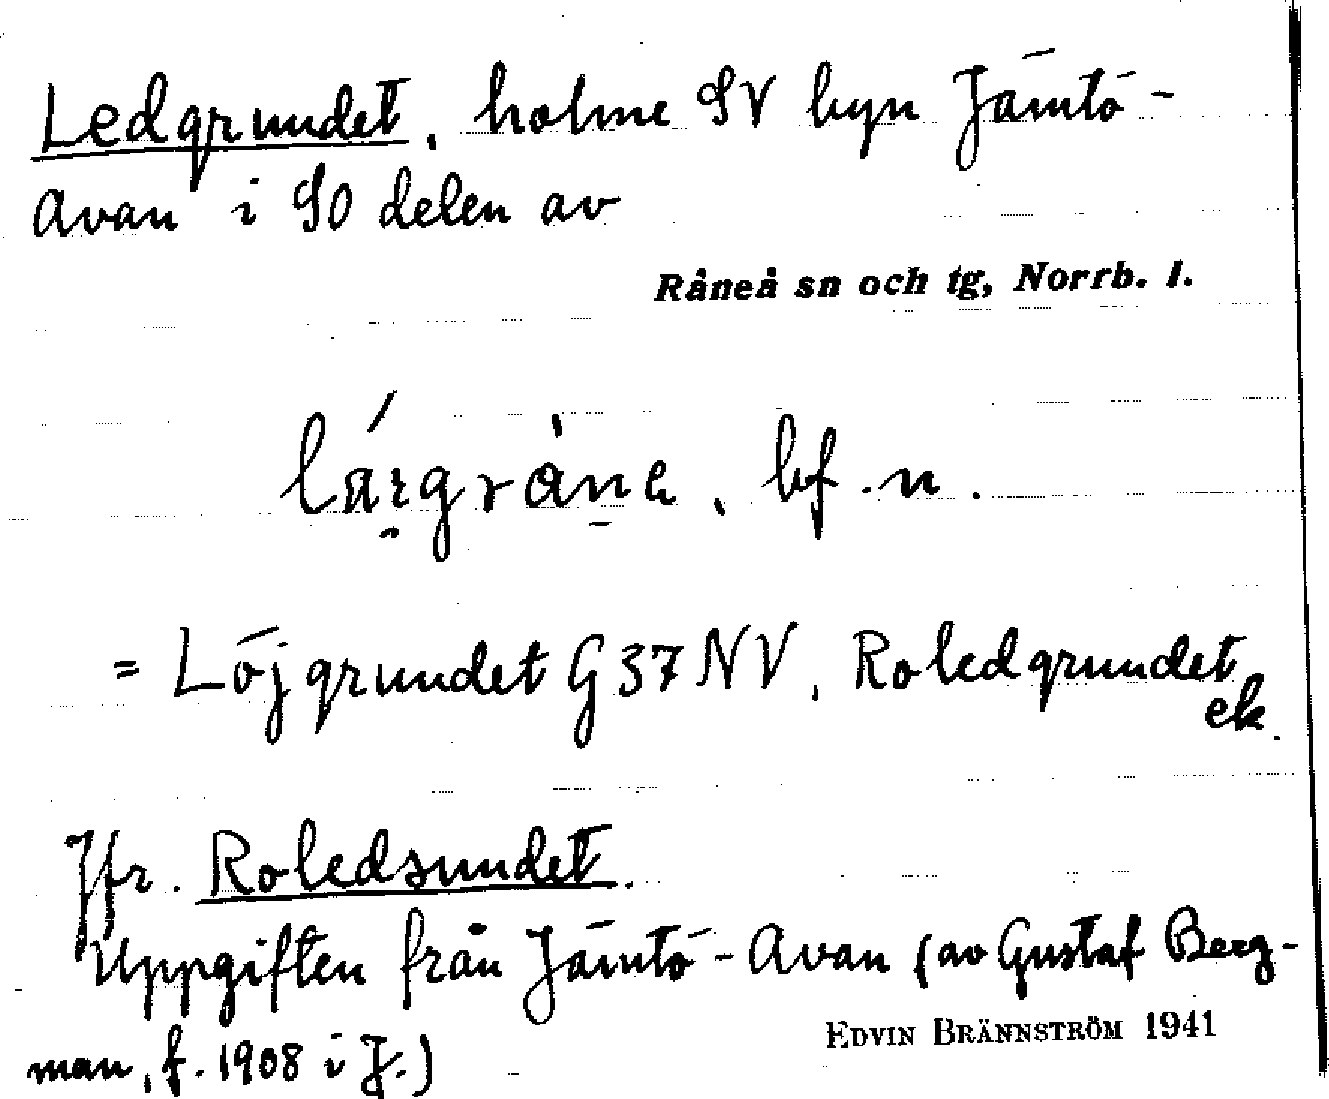 Ledgrundet, holme SV byn Jämtö-
Avan i SO delen av
Råneå sn och tg, Norrb. l.
bf. n.
= Löjgrundet G 37 NV, Roledgrundet
ek.
Jfr. Roledsundet.
Uppgiften från Jämtö-Avan (av Gustaf Berg-
man, f. 1908 i J.)
EDVIN BRÄNNSTRÖM 1941